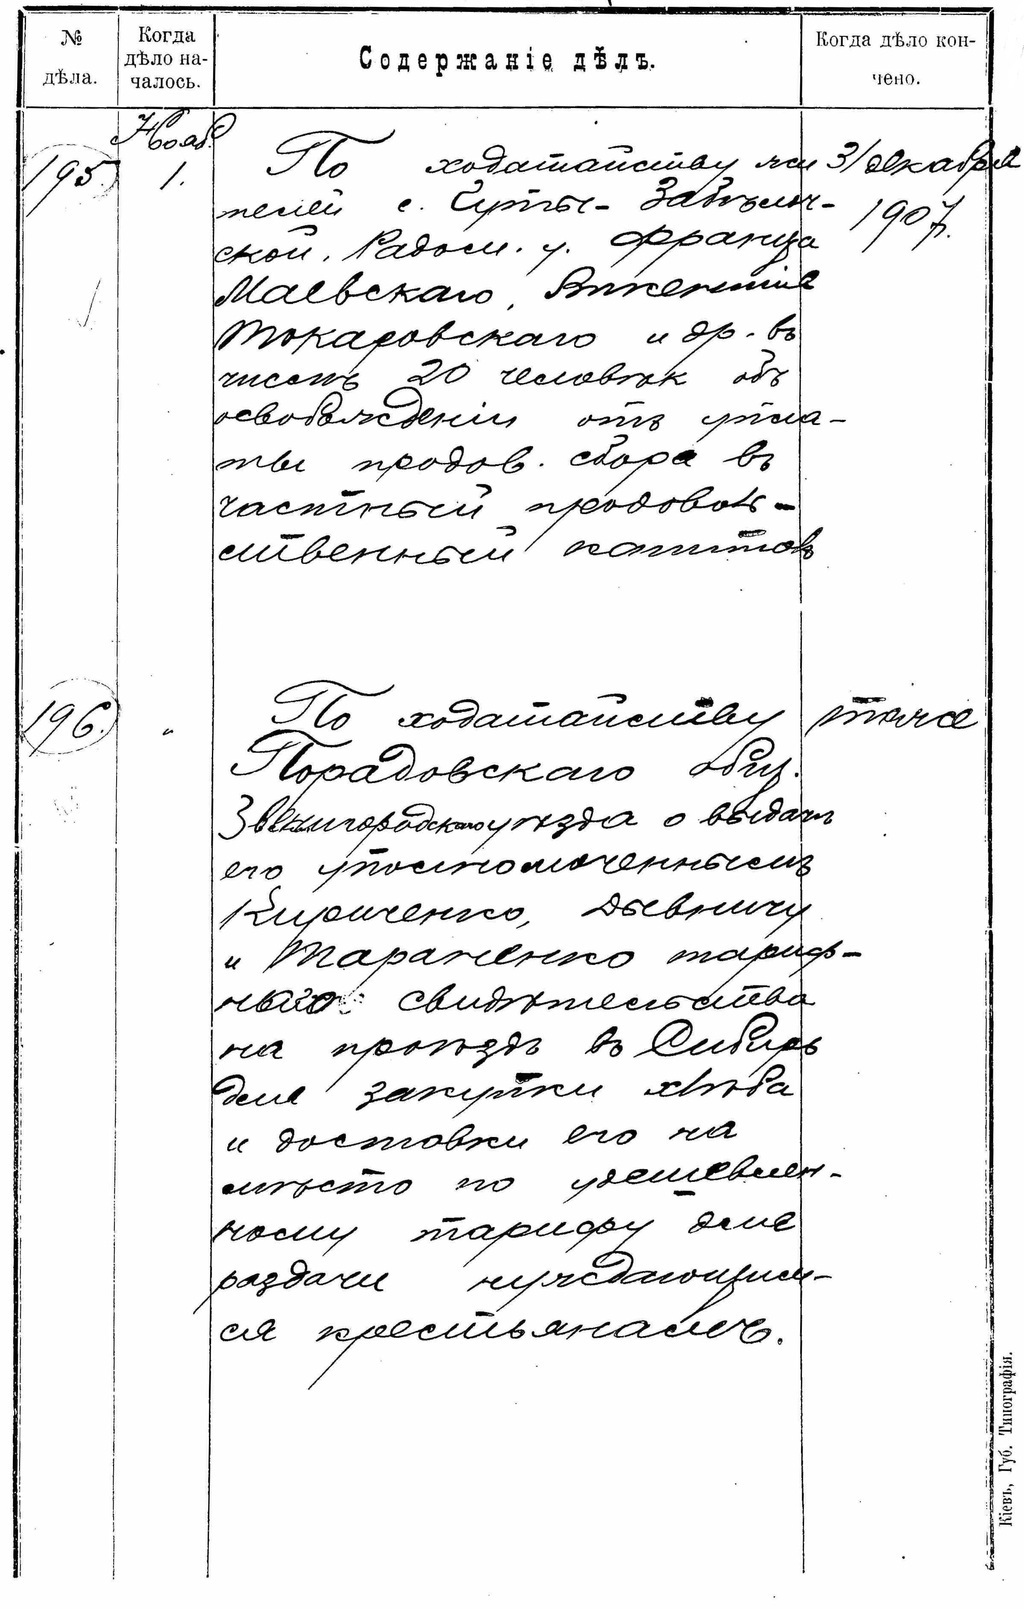 № дѣла.
Когда дѣло на-чалось.
Содержаніе дѣлъ.
Когда дѣло кон-чено.
Нояб.
195.
1.
По ходатайству жи
телей с. Гуты- Забѣлоч-
ской, Радом. у. Франца
Маевскаго, Викентія
Токаровскаго и др. въ
числѣ 20 человѣк объ
освобожденіи отъ упла-
ты продов. сбора въ
частный продоволь-
ственный капиталъ
31 декабря
1907.
196.
"
По ходатайству
Порадовскаго общ.
Звенигородскаго уѣзда о выдачѣ
его уполномоченнымъ
Кириченко,
и Тараненко тариф-
наго свидѣтельства
на проѣздъ въ Сибирь
для закупки хлѣба
и доставки его на
мѣсто по удешевлен-
ному тарифу для
раздачи нуждающим-
ся крестьянамъ.
тоже
Кіевъ, Губ. Типографія.